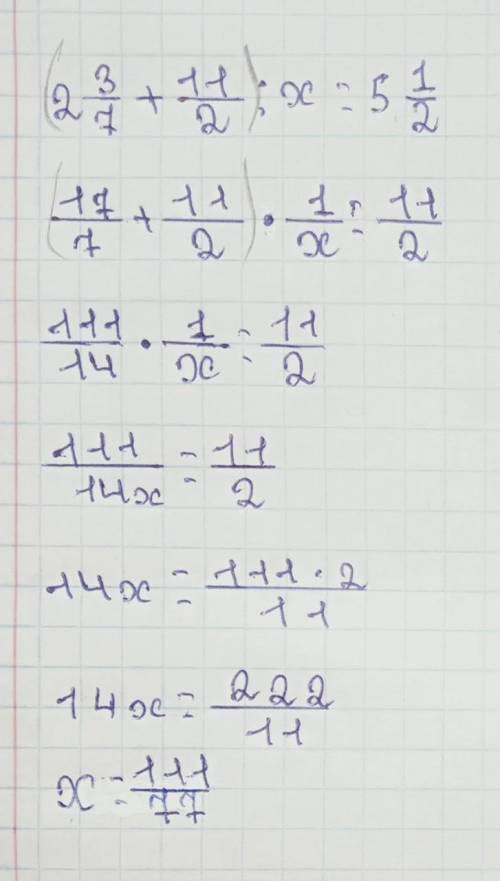 (2 3/7 + 11/2) : x = 5 1/2
(17/7 + 11/2) · 1/x = 11/2
111/14 · 1/x = 11/2
111/14x = 11/2
14x = 111·2/11
14x = 222/11
x = 111/77